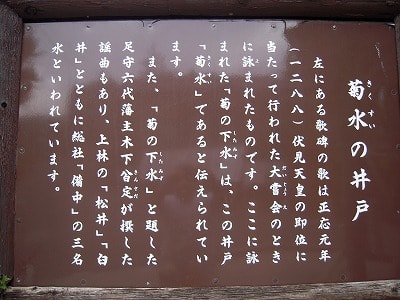 菊水の井戸
きくすい
左にある歌碑の歌は正応元年
(一二八八)伏見天皇の即位に
当たって行われた大嘗会のとき
に詠まれたものです。ここに詠
まれた「菊の下水」は、この井戸
「菊水」であると伝えられてい
ます。
また、「菊の下水」と題した
足守六代藩主木下㒶定が撰した
謡曲もあり、上林の「松井」「臼
井」とともに総社「備中」の三名
水といわれています。